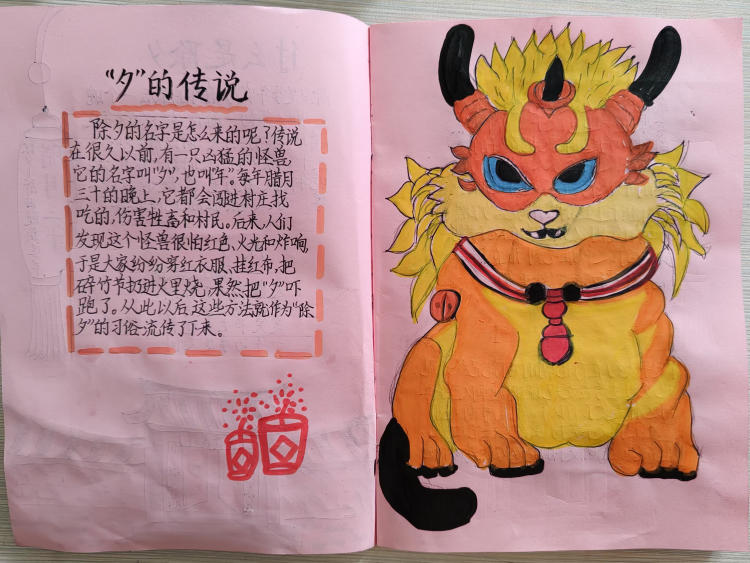 “夕”的传说
除夕的名字是怎么来的呢？传说
在很久以前，有一只凶猛的怪兽，
它的名字叫“夕”，也叫“年”。每年腊月
三十的晚上，它都会闯进村庄找
吃的，伤害牲畜和村民。后来，人们
发现这个怪兽很怕红色、火光和炸响，
于是大家纷纷穿红衣服、挂红布，把
碎竹节扔进火里烧，果然把“夕”吓
跑了。从此以后，这些方法就作为“除
夕”的习俗流传了下来。